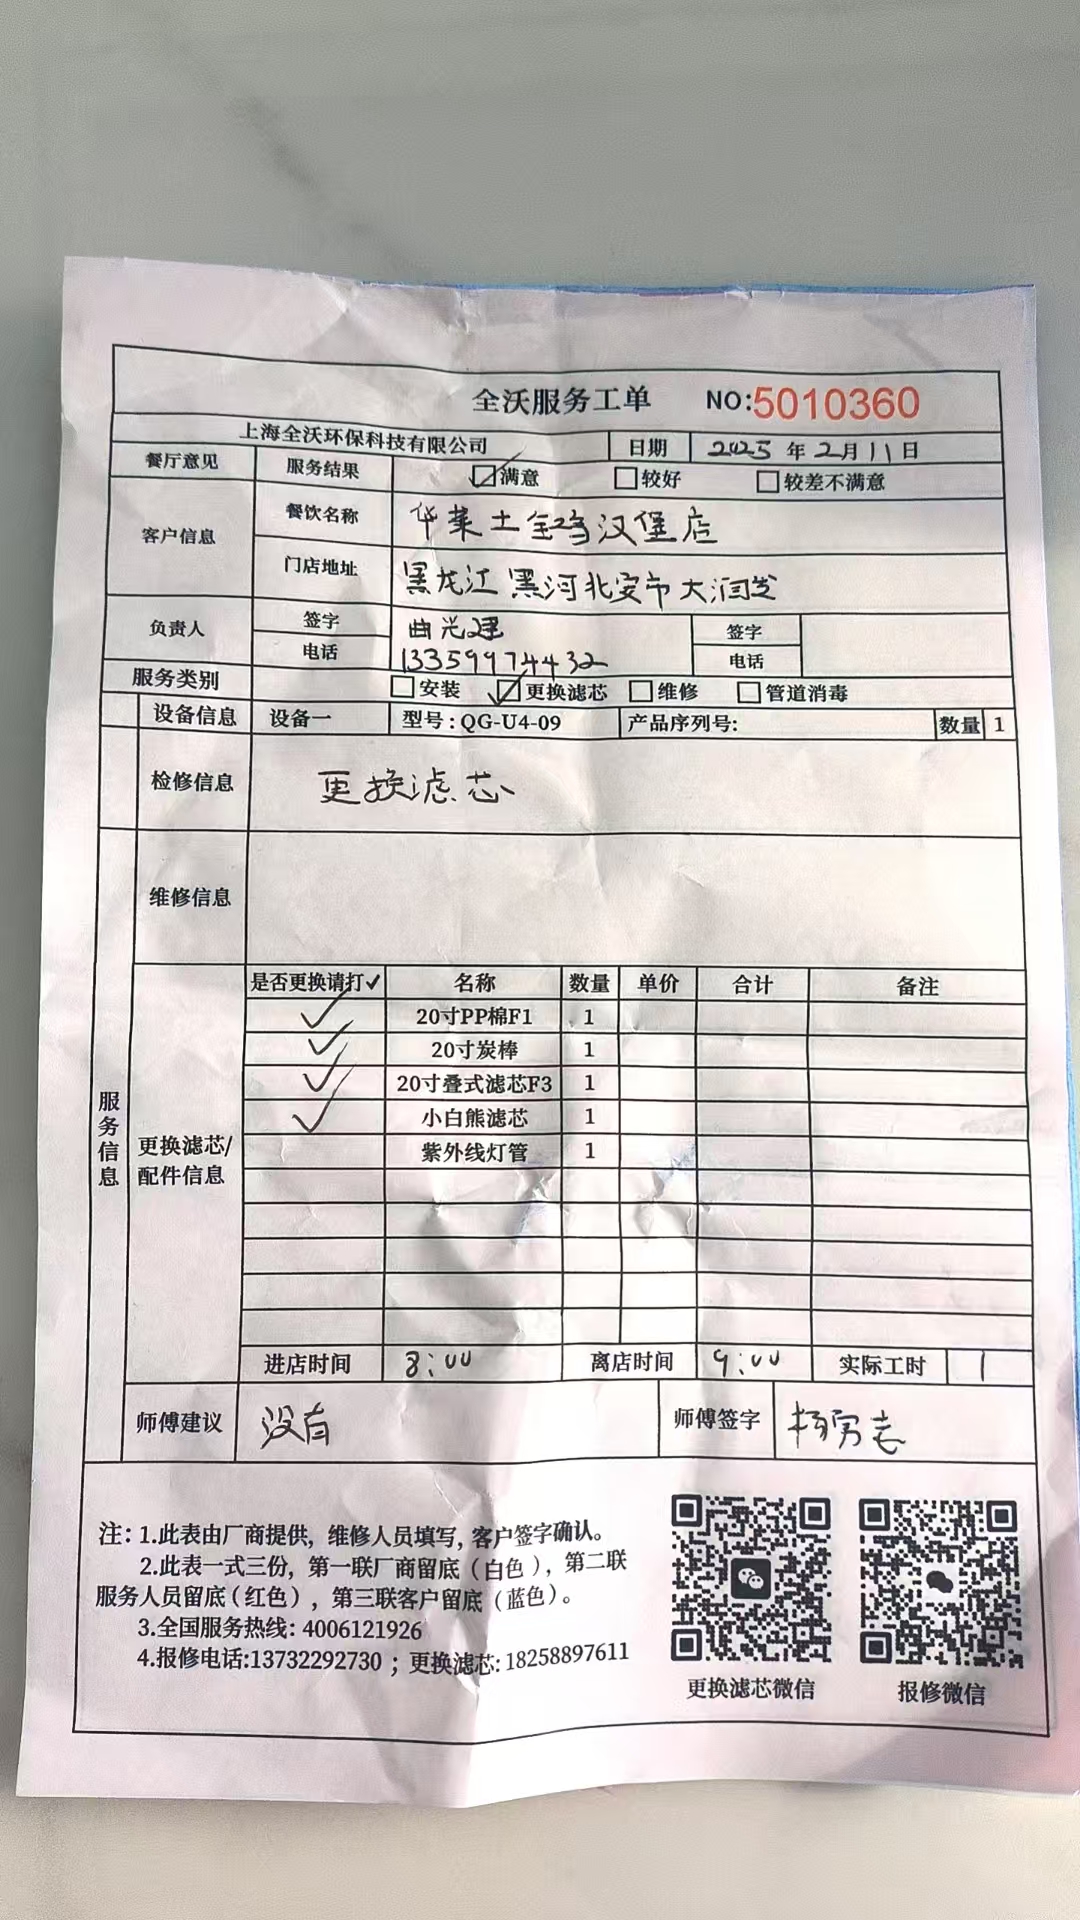 全沃服务工单 NO:5010360
上海全沃环保科技有限公司 日期 2025年2月11日
餐厅意见 服务结果 ☑满意 □较好 □较差不满意
客户信息 餐饮名称 华莱士全鸡汉堡店
门店地址 黑龙江黑河北安市大润发
负责人 签字 曲光建 签字
电话 13359974432 电话
服务类别 □安装 ☑更换滤芯 □维修 □管道消毒
设备信息 设备一 型号:QG-U4-09 产品序列号: 数量 1
检修信息 更换滤芯
维修信息
服务信息
更换滤芯/配件信息
是否更换请打✓ 名称 数量 单价 合计 备注
✓ 20寸PP棉F1 1
✓ 20寸炭棒 1
✓ 20寸叠式滤芯F3 1
✓ 小白熊滤芯 1
紫外线灯管 1
进店时间 8:00 离店时间 9:00 实际工时 1
师傅建议 没有 师傅签字
注: 1.此表由厂商提供, 维修人员填写, 客户签字确认。
2.此表一式三份, 第一联厂商留底(白色), 第二联
服务人员留底(红色), 第三联客户留底(蓝色)。
3.全国服务热线: 4006121926
4.报修电话:13732292730 ; 更换滤芯: 18258897611
更换滤芯微信 报修微信